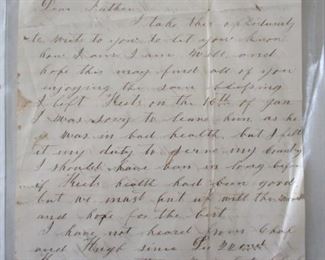 Dear Father
I take this opportunity
to write to you to let you know
how I am I am Well and
hope this may find all of you
enjoying the same blessing
I left on the 16th of Jan
I was sorry to leave him as he
is was in bad health but I felt
it my duty to serve my country
I should have ben in long before
if health had been good
but we must put up with the
and hope for the best
I have not heard from Chas
and Hugh since